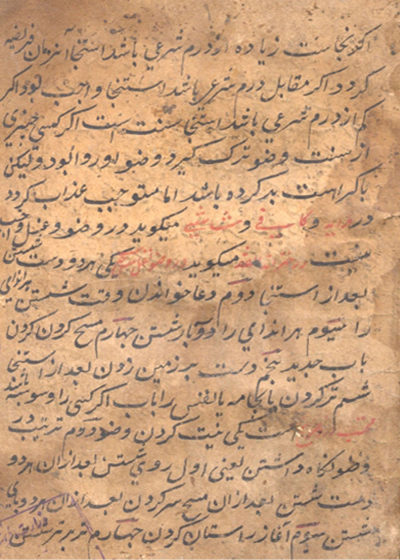 اکر نجاست زیاده از درم شرعی باشد استنجا آنزمان فریضه
کردد اکر مقابل درم شرعی باشد استنجا واجب بود اکر
کم از درم شرعی باشد استنجا سنت است اکر کسی چیزی
از سنت وضو ترک کیرد وضو او روا بود ولیکن
باکراهت بد کرده باشد اما مستوجب عذاب کردد
در و کافی و میکوید در وضو و غسل واجب
نیست میکوید یکی هر دو دست شستن
بعد از استنجا دوم دعا خواندن وقت شستن هر اندامی
را سیوم هر اندامی را دوبار شستن چهارم مسح کردن کردن
باب جدید پنجم دست بر زمین زدن بعد از استنجا
ششم تر کردن پایجامه یا نفس را باب اکر کسی را وسوسه
است یکی نیت کردن وضو دوم ترتیب در
وضو نکاه داشتن یعنی اول روی شستن بعد از ان هر دو
دست شستن بعد از ان مسح سر کردن بعد از ان هر دو پای
شستن سیوم آغاز راستان کردن چهارم تر بر تر شستن